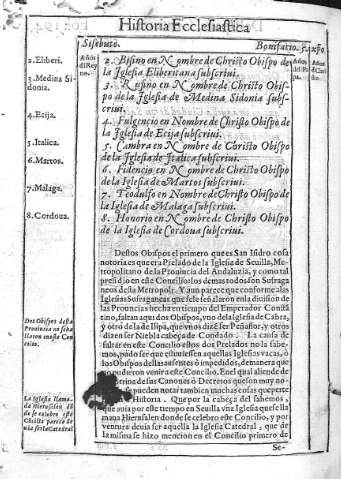 Historia Ecclesiastica
Sisebuto. Bonifacio. 5. xp̃o.
Años del Rey
1. Eliberi.
2. Bisino en Nombre de Christo Obispo de
la Iglesia Eliberitana subscriui.
2. Medina Sidonia.
3. Rufino en Nombre de Christo Obispo de la Iglesia de Medina Sidonia Subscriui.
4. Ecija.
4. Fulgencio en Nombre de Christo Obispo de
la Iglesia de Ecija subscriui.
5. Italica.
5. Cambra en Nombre de Christo Obispo
de la Iglesia de Italica subscriui.
6. Martos.
6. Fidencio en Nombre de Christo Obispo de
la Iglesia de Martos subscriui.
7. Malaga.
7. Teodulfo en Nombre de Christo Obispo de
la Iglesia de Malaga subscriui.
8. Cordoua.
8. Honorio en Nombre de Christo Obispo de
la Iglesia de Cordoua subscriui.
Destos Obispos el primero que es San Isidro cosa
notoria es que era Prelado de la Iglesia de Seuilla, Me-
tropolitano de la Prouincia del Andaluzia, y como tal
presidio en este Concilio los demas todos son Sufra-
ganeos desta Metropoli. Y aun parece que conforme a las
Iglesias Sufraganeas que se le señalaron en la diuision de
las Prouincias hecha en tiempo del Emperador Constã-
tino, faltan aqui dos Obispos, vno de la Iglesia de Cabra,
y otro de la de Ilipa, que vnos dizē ser Peñaflor, y otros
dizen ser Niebla cabeça de Condado. La causa de
faltar en este Concilio estos dos Prelados no la sabe-
mos, pudo ser que estuuiessen aquellas Iglesias vacas, ò
los Obispos dellas ausentes ò impedidos, de manera que
no pudieron venir a este Concilio. En el qual aliende de
doctrina de sus Canones ò Decretos
se pueden notar tambien muchas cosas que
Historia. Que por la cabeça del sabemos,
que auia por este tiempo en Seuilla vna Iglesia que se lla
maua Hierusalen donde se celebro este Concilio, y por
ventura deuia ser aquella la Iglesia Catedral, que de
la misma se hizo mencion en el Concilio primero de
Se-
Dos Obispos desta
Prouincia no se ha
llaron en este Con
cilio.
La Iglesia llama
da Hierusalen dõ
de se celebro este
Cõcilio parece se
ria ser la Catedral